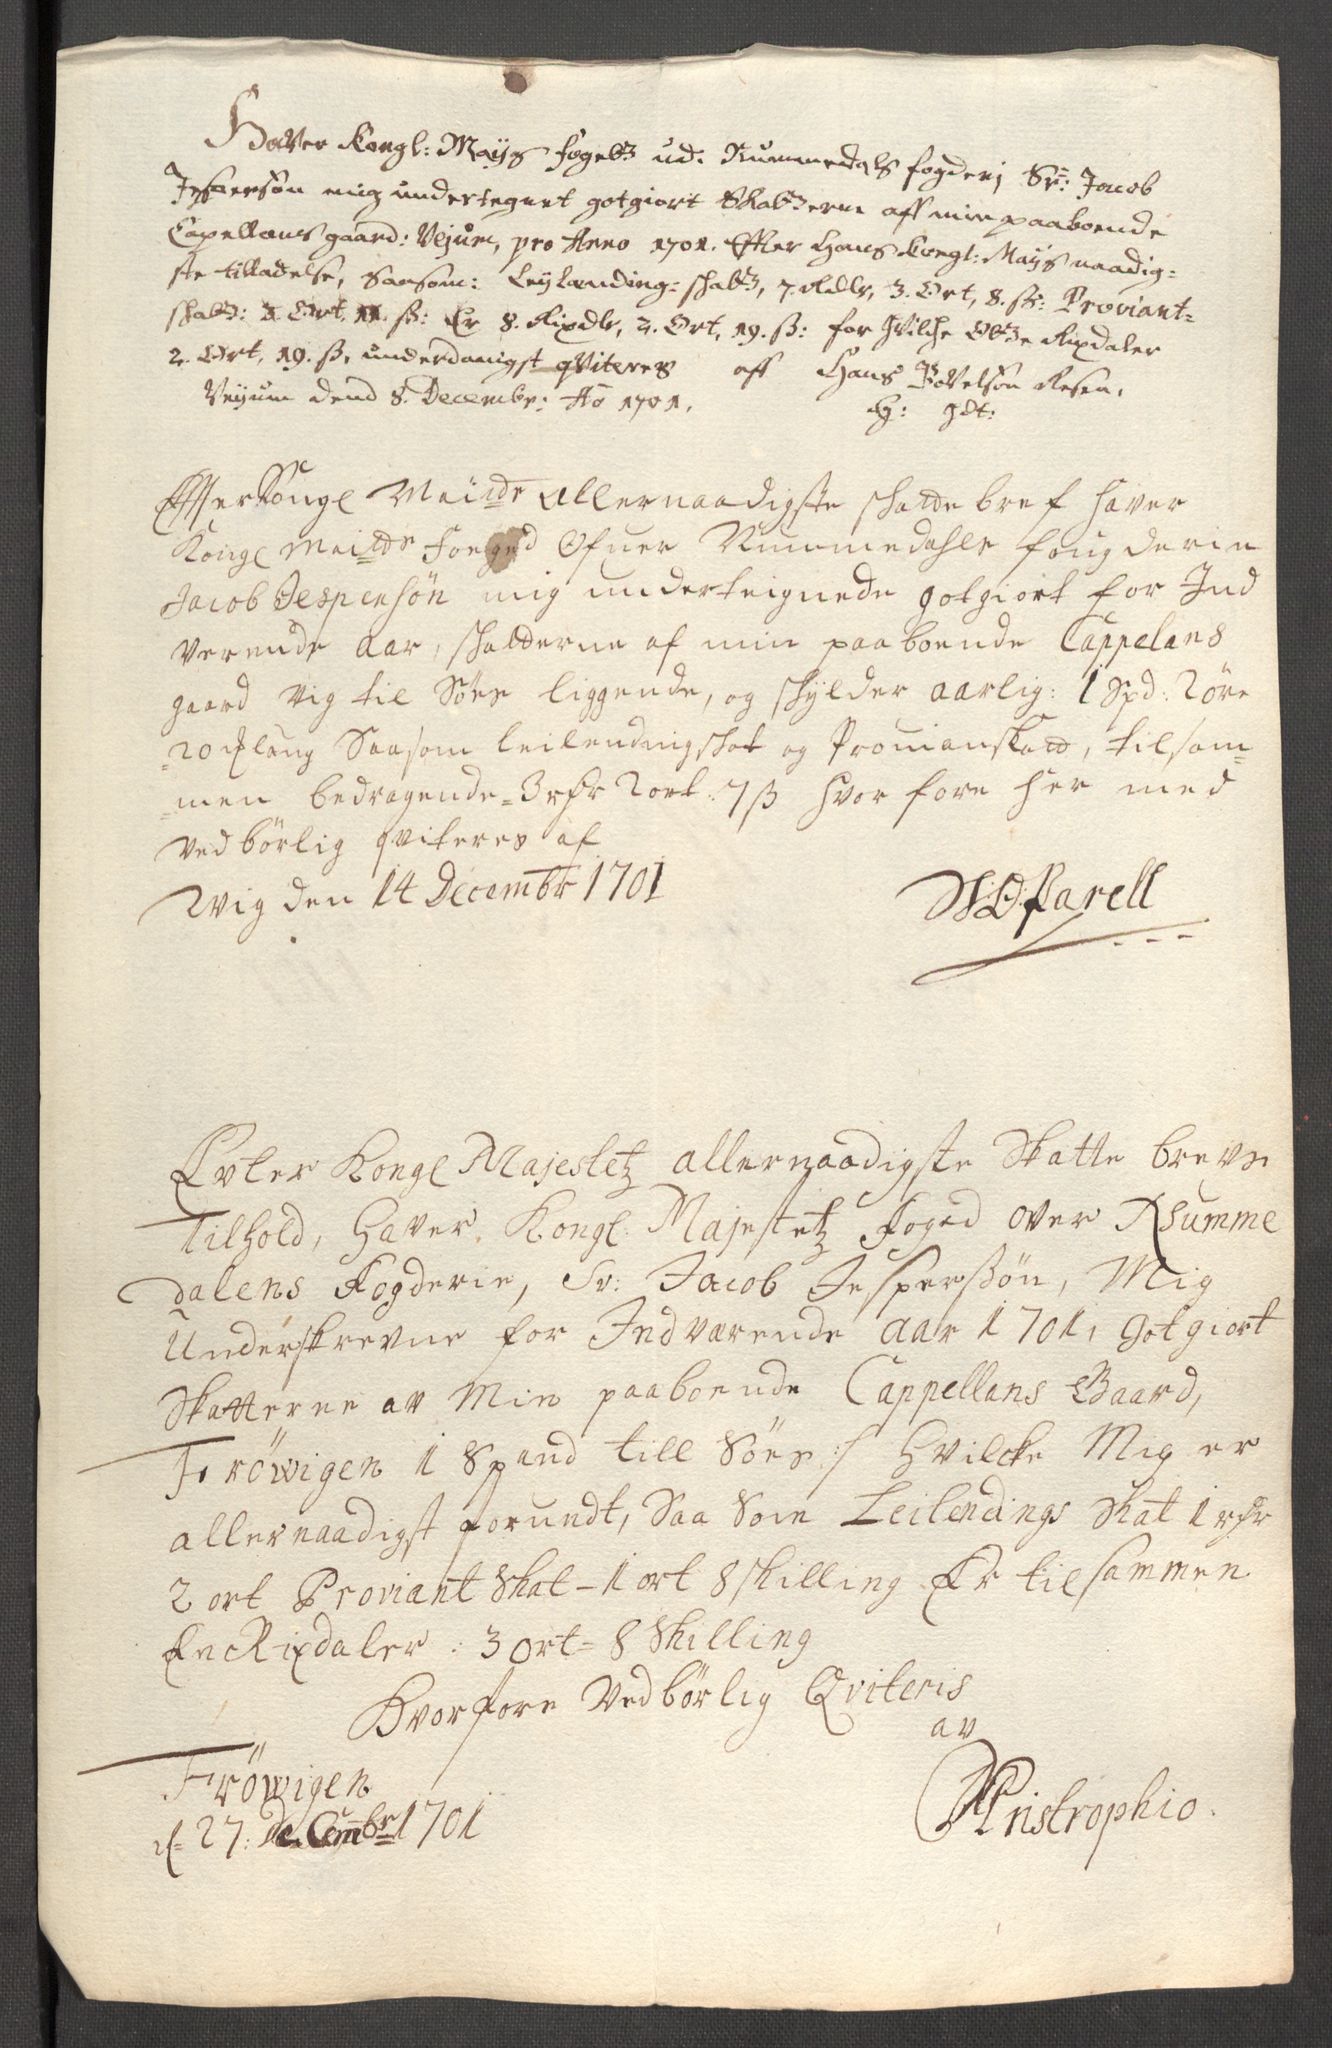 Haver Kongl: Mayts fogetz udi Nummedals fogderj Sr: Jacob
Jespersøn mig undertegnet gotgiort Skatzerne aff min paaboende
Capellans gaard: Vejum, pro Anno 1701. Effter Hans Kongl: Mayts naadig-
ste tilladelse, Saasom: Leylænding-skatz, 7. Rdlr, 3. Ort, 8. ß: Proviant-
skatz: 3 Ort. 11. ß: Er 8. Rixdlr, 2. Ort, 19. ß: for hvilche Otte Rixdaler
2. Ort, 19. ß, underdanigst qviteres aff Hans Povelsøn Resen.
Vejum dend 8. Decembr: Ao 1701.
Effter Kongl Maiitts allernaadigste skattebref hafver
Kongl Maitts Foeged Ofver Nummedahls fougderie
Jacob Jespersøn mig underteignede gotgiort for Ind
verende aar, skatterne af min paaboende Cappelans
gaard Vig til Søes liggende, og skylder aarlig: 1 Spd: 2 öre
Saasom leilendingskat og Provianskatt, tilsam-
men bedragende 3 rdr 2 ort: 7 ß hvor fore her med
vedbörlig qviteres af
Wig den 14 Decembr 1701
Parell
Evter Kongl Majestetz allernaadigste Skatte brevs
Tilhold, Haver Kongl: Majestetz Foged over Numme
dalens Fogderie, Sr: Jacob Jesperßön, Mig
Underskrevne for Indværende aar 1701, gotgiort
Skatterne av Min paaboende Cappellans Gaard,
Fröwigen 1 Spand till Söes :/ Hvilcke Mig er
allernaadigst forundt, Saa Som Leilendings Skat 1 rdr
2 ort Proviant Skat - 1 ort 8 skilling Er tilsammen
En Rixdaler : 3 ort - 8 Skilling
Hvorfore Vedbörlig Qviteris
av
Fröwigen
d- 27: Decembr 1701
Aristrophio.